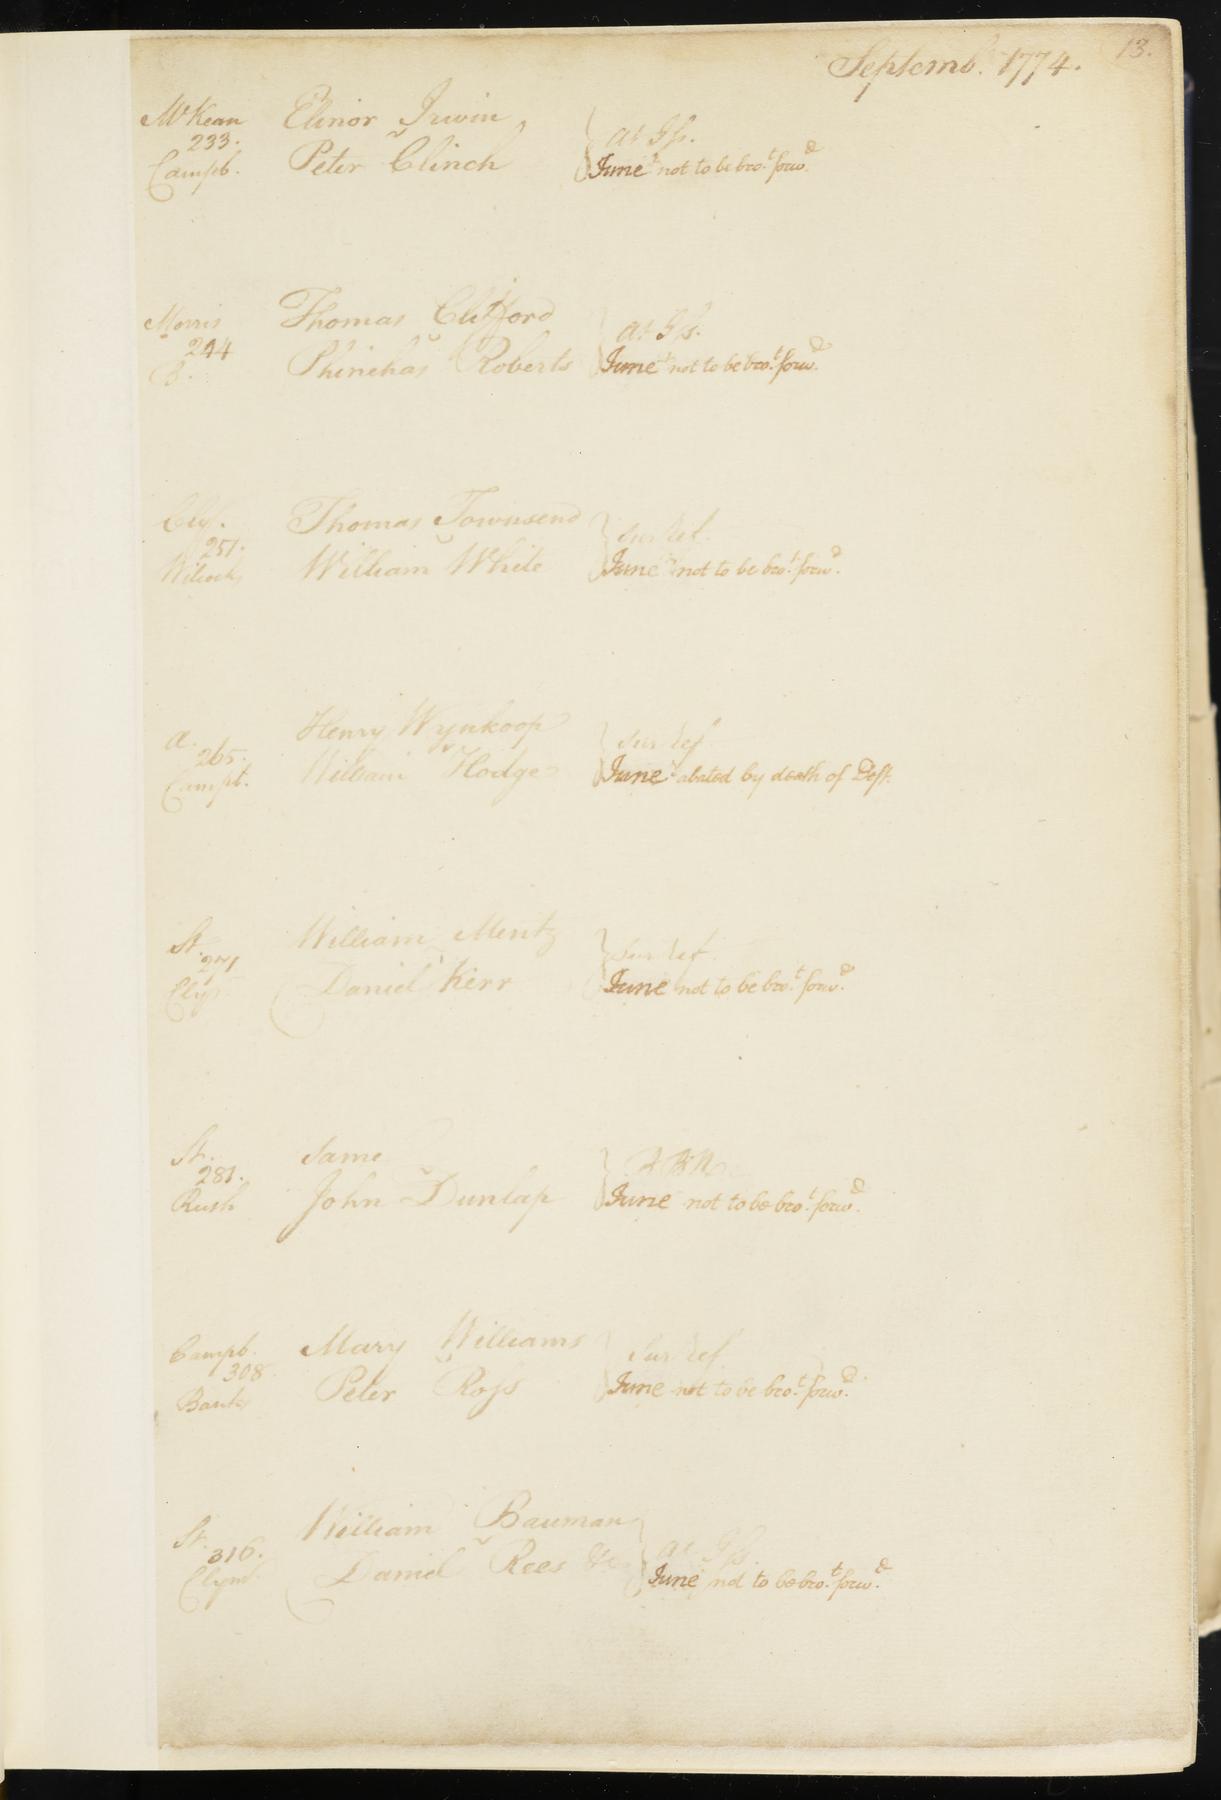 Septemb. 1774. 13.
McKean Elinor Irwin
233. v at Iss.
Campb. Peter Clinch June not to be bro.t forw.d
Morris Thomas Clifford
244 v at Iss.
B. Phinehas Roberts June not to be bro.t forw.d
Thomas Townsend
251. v Sur ref.
Wilcocks William White June not to be bro.t forw.d
a. Henry Wynkoop
265. v Sur ref
Campb. William Hodge June abated by death of Deft.
St. William Mentz
271 v Sur ref.
Daniel Kerr June not to be bro.t forw.d
St. Same
281. v
Rush John Dunlap June not to be bro.t forw.d
Campb. Mary Williams
308 v Sur ref.
Bank Peter Ross June not to be bro.t forw.d
St. William Bauman
316. v at Iss
Clym. Daniel Rees &c June not to be bro.t forw.d